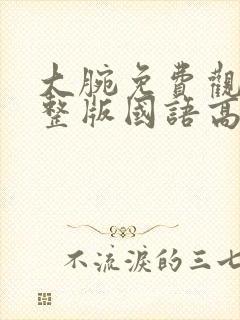 大腕免費觀
整版國語高
不流淚的三七